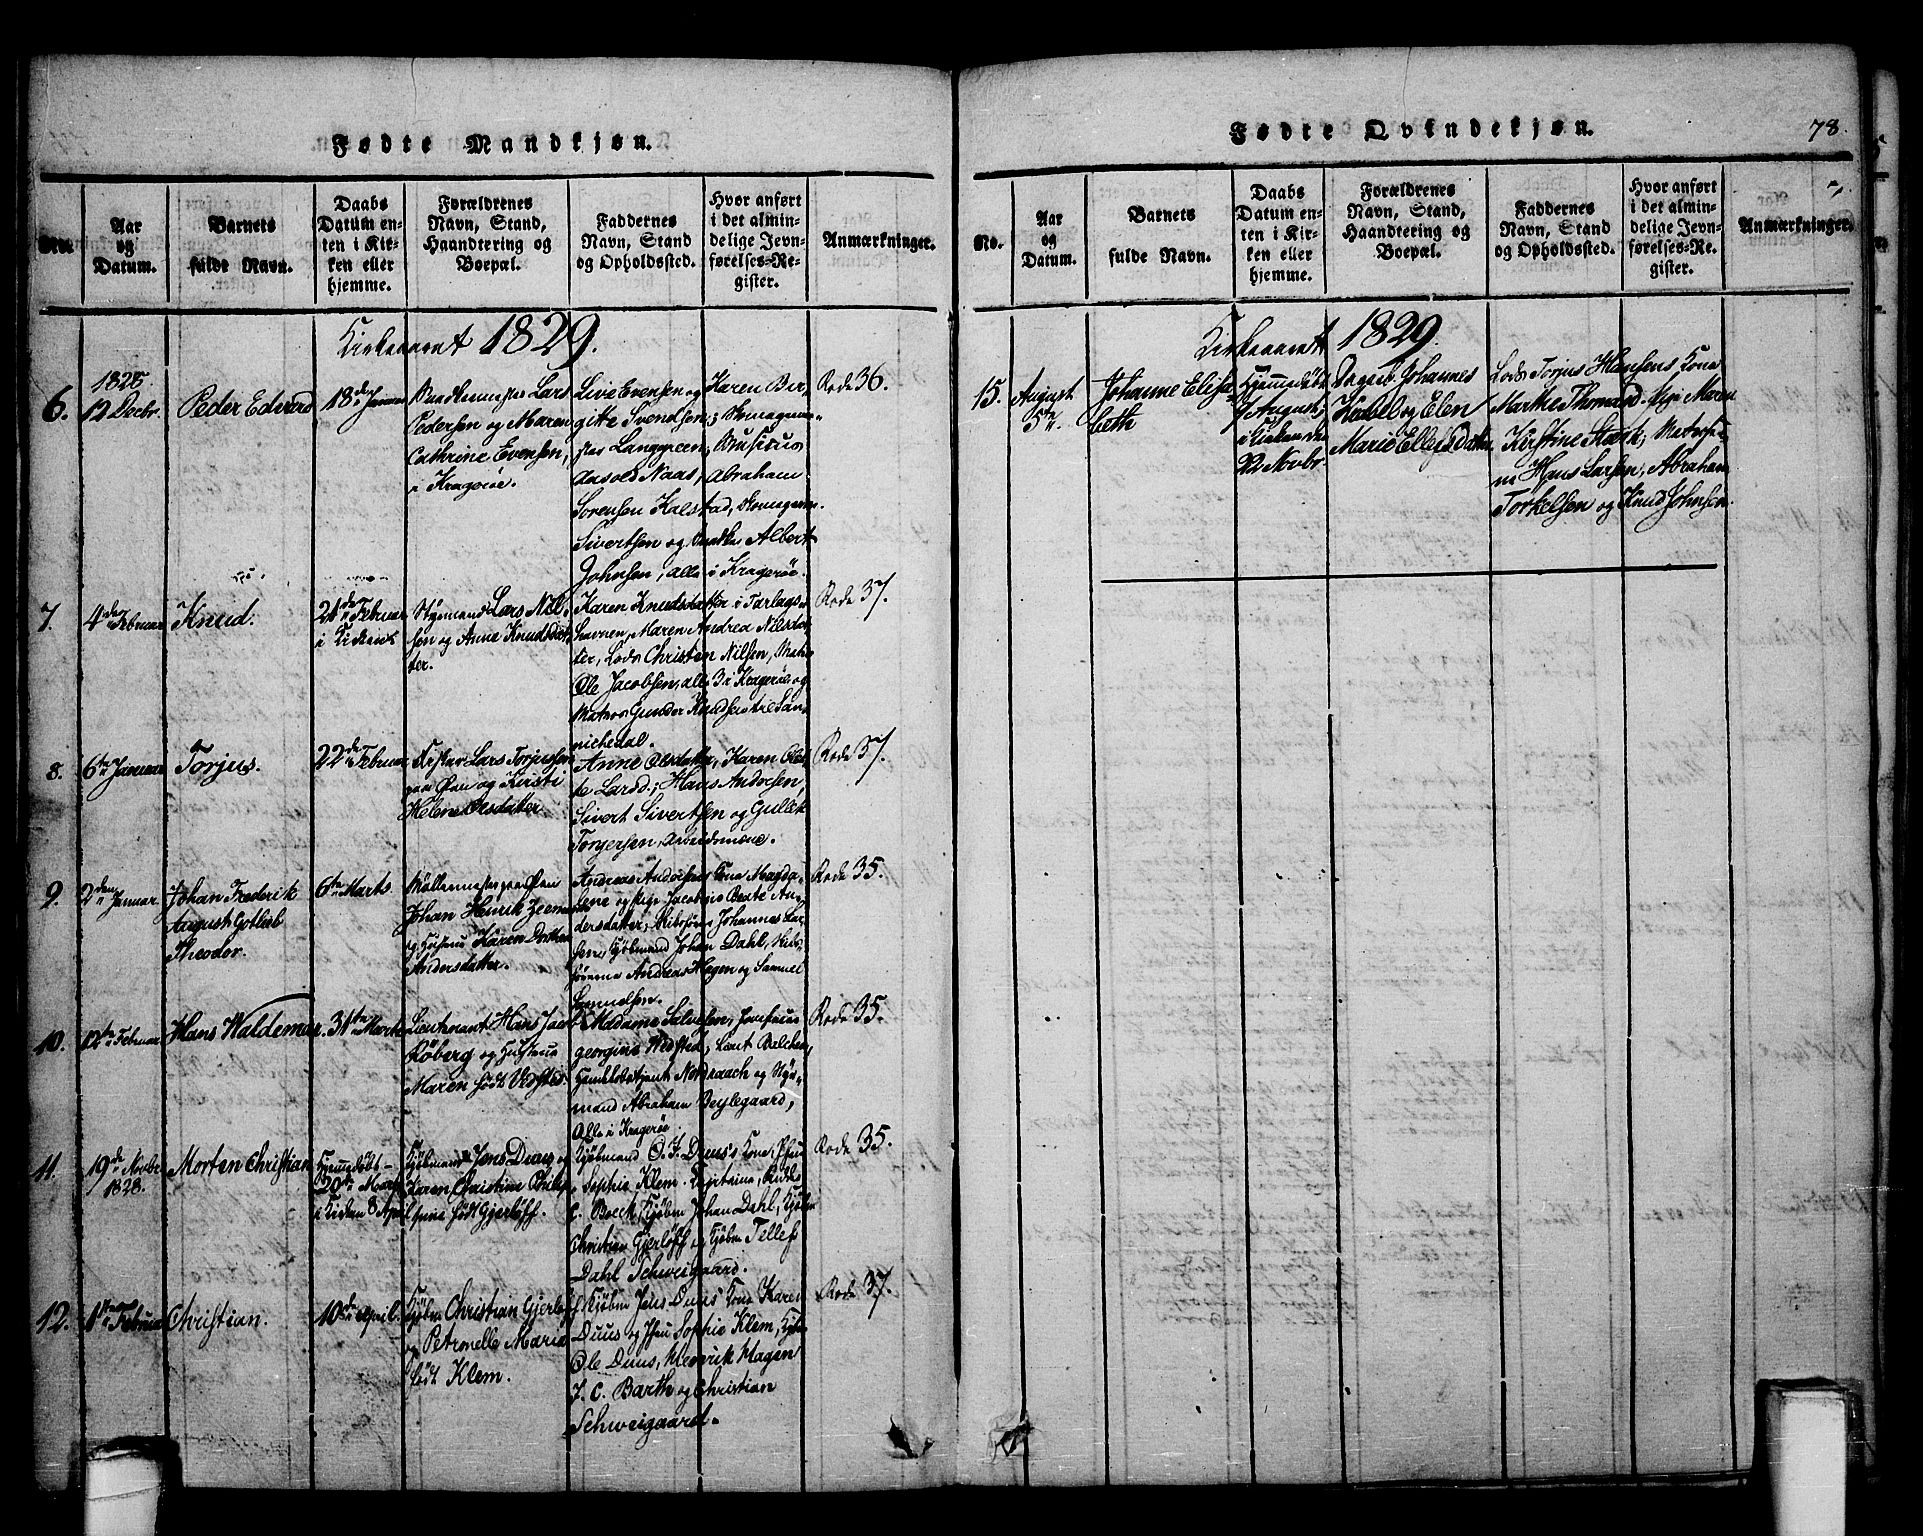 Fødte Mandkjøn.
No.
Aar
og
Datum.
Barnets
fulde Navn.
Daabs
Datum en-
ten i Kir-
ken eller
hjemme.
Forældrenes
Navn, Stand,
Haandtering og
Boepæl.
Faddernes
Navn, Stand
og Opholdssted.
Hvor anført
i det almin-
delige Jevn-
førelses-Re-
gister.
Anmærkninger.
Kirkeaaret 1829.
6.
1828
12 Decbr.
Peder Edvard
18de Januar
Lars
Pedersen og Maren
Cathrine Evensen,
i Kragerøe.
Live Evensen og Karen Bir-
gitte Svendsen;
Langgreen,
Arnold Naas, Abraham
Sørensen Kalstad,
Sivertsen og Albert
Johnsen, alle i Kragerøe.
Rode 36.
7.
4de Februar
Knud.
21de Februar
i Kirken
Styrmand Lars Nil-
sen og Anne Knudsdat-
ter.
Karen Knudsdatter i Tarlags-
havnen, Maren Andrea Nilsdat-
ter, Lods Christen Nilsen, Matros
Ole Jacobsen, alle 3 i Kragerøe og
Matros Gunder Knudsen San-
nichedal.
Rode 37.
8.
6te Januar
Torjus.
22de Februar
Lars Torjussen
paa Øen og Kirsti
Helene Olsdatter
Anne Olsdatter, Karen
Larsd.; Hans Andersen,
Sivert Sivertsen og Gullek
Torgersen, Arbeidsmænd.
Rode 37.
9.
2den Januar.
Johan Frederik
August Gotlieb
Theodor.
6te Marts
Møllermester paa Øen
Johan Henrik
og Hustrue Karen Dorthea
Andersdatter.
Andreas Andersens Kone Magda-
lene og Pige Jacobine Beate An-
dersdatter; Johannes Lar-
sen, Kjøbmand Johan Dahl,
Andreas Hagen og Samuel
Samuelsen.
Rode 35.
10.
12te Februar
Hans Waldemar.
31te Marts
Lieutnant Hans Jacob
Røberg og Hustrue
Maren født Wefsted.
Madame Salvesen, Jomfrue
Georgine Wefsted, Balchen,
Nordraach og Styr-
mand Abraham Deylegaard,
Alle i Kragerøe.
Rode 35.
11.
19de Novbr
1828.
Morten Christian
Hjemmedøbt
20de Marts
i Kirken 8 April
Kjøbmand Jens Duus og
Karen Christine
født Gjerløff.
Kjøbmand O. J. Duus's Kone, Jfru
Sophie Klem.
C. Boeck, Kjøbm Johan Dahl, Kjøbm
Christian Gjerløff og Kjøbm Tellef
Dahl Schweigaard.
Rode 35.
12.
1ste Februar
Christian.
10de April.
Kjøbm Christian Gjerløff
og Petronelle Maria
født Klem.
Kjøbm Jens Duus' Kone Karen
Duus og Jfru Sophie Klem, Kjøbm
Ole Duus, Henrik Hagen
J. C. Barth og Christian
Schweigaard.
Rode 37.
Fødte Qvindekjøn.
78.
No.
Aar
og
Datum.
Barnets
fulde Navn.
Daabs
Datum en-
ten i Kir-
ken eller
hjemme.
Forældrenes
Navn, Stand,
Haandtering og
Boepæl.
Faddernes
Navn, Stand
og Opholdssted.
Hvor anført
i det almin-
delige Jevn-
førelses-Re-
gister.
Anmærkninger.
Kirkeaaret 1829.
15.
August
5te.
Johanne Elisa-
beth
Hjemmedøbt
7 August,
i Kirken den
22 Novbr.
Johannes
og Elen
Marie Ellefsdatter
Lods Torjus Hansens Kone
Marthe Thomasd. Pige Maren
Kirstine Stærk, Matros
Hans Larsen, Abraham
Torkelsen og Knud Johnsen.